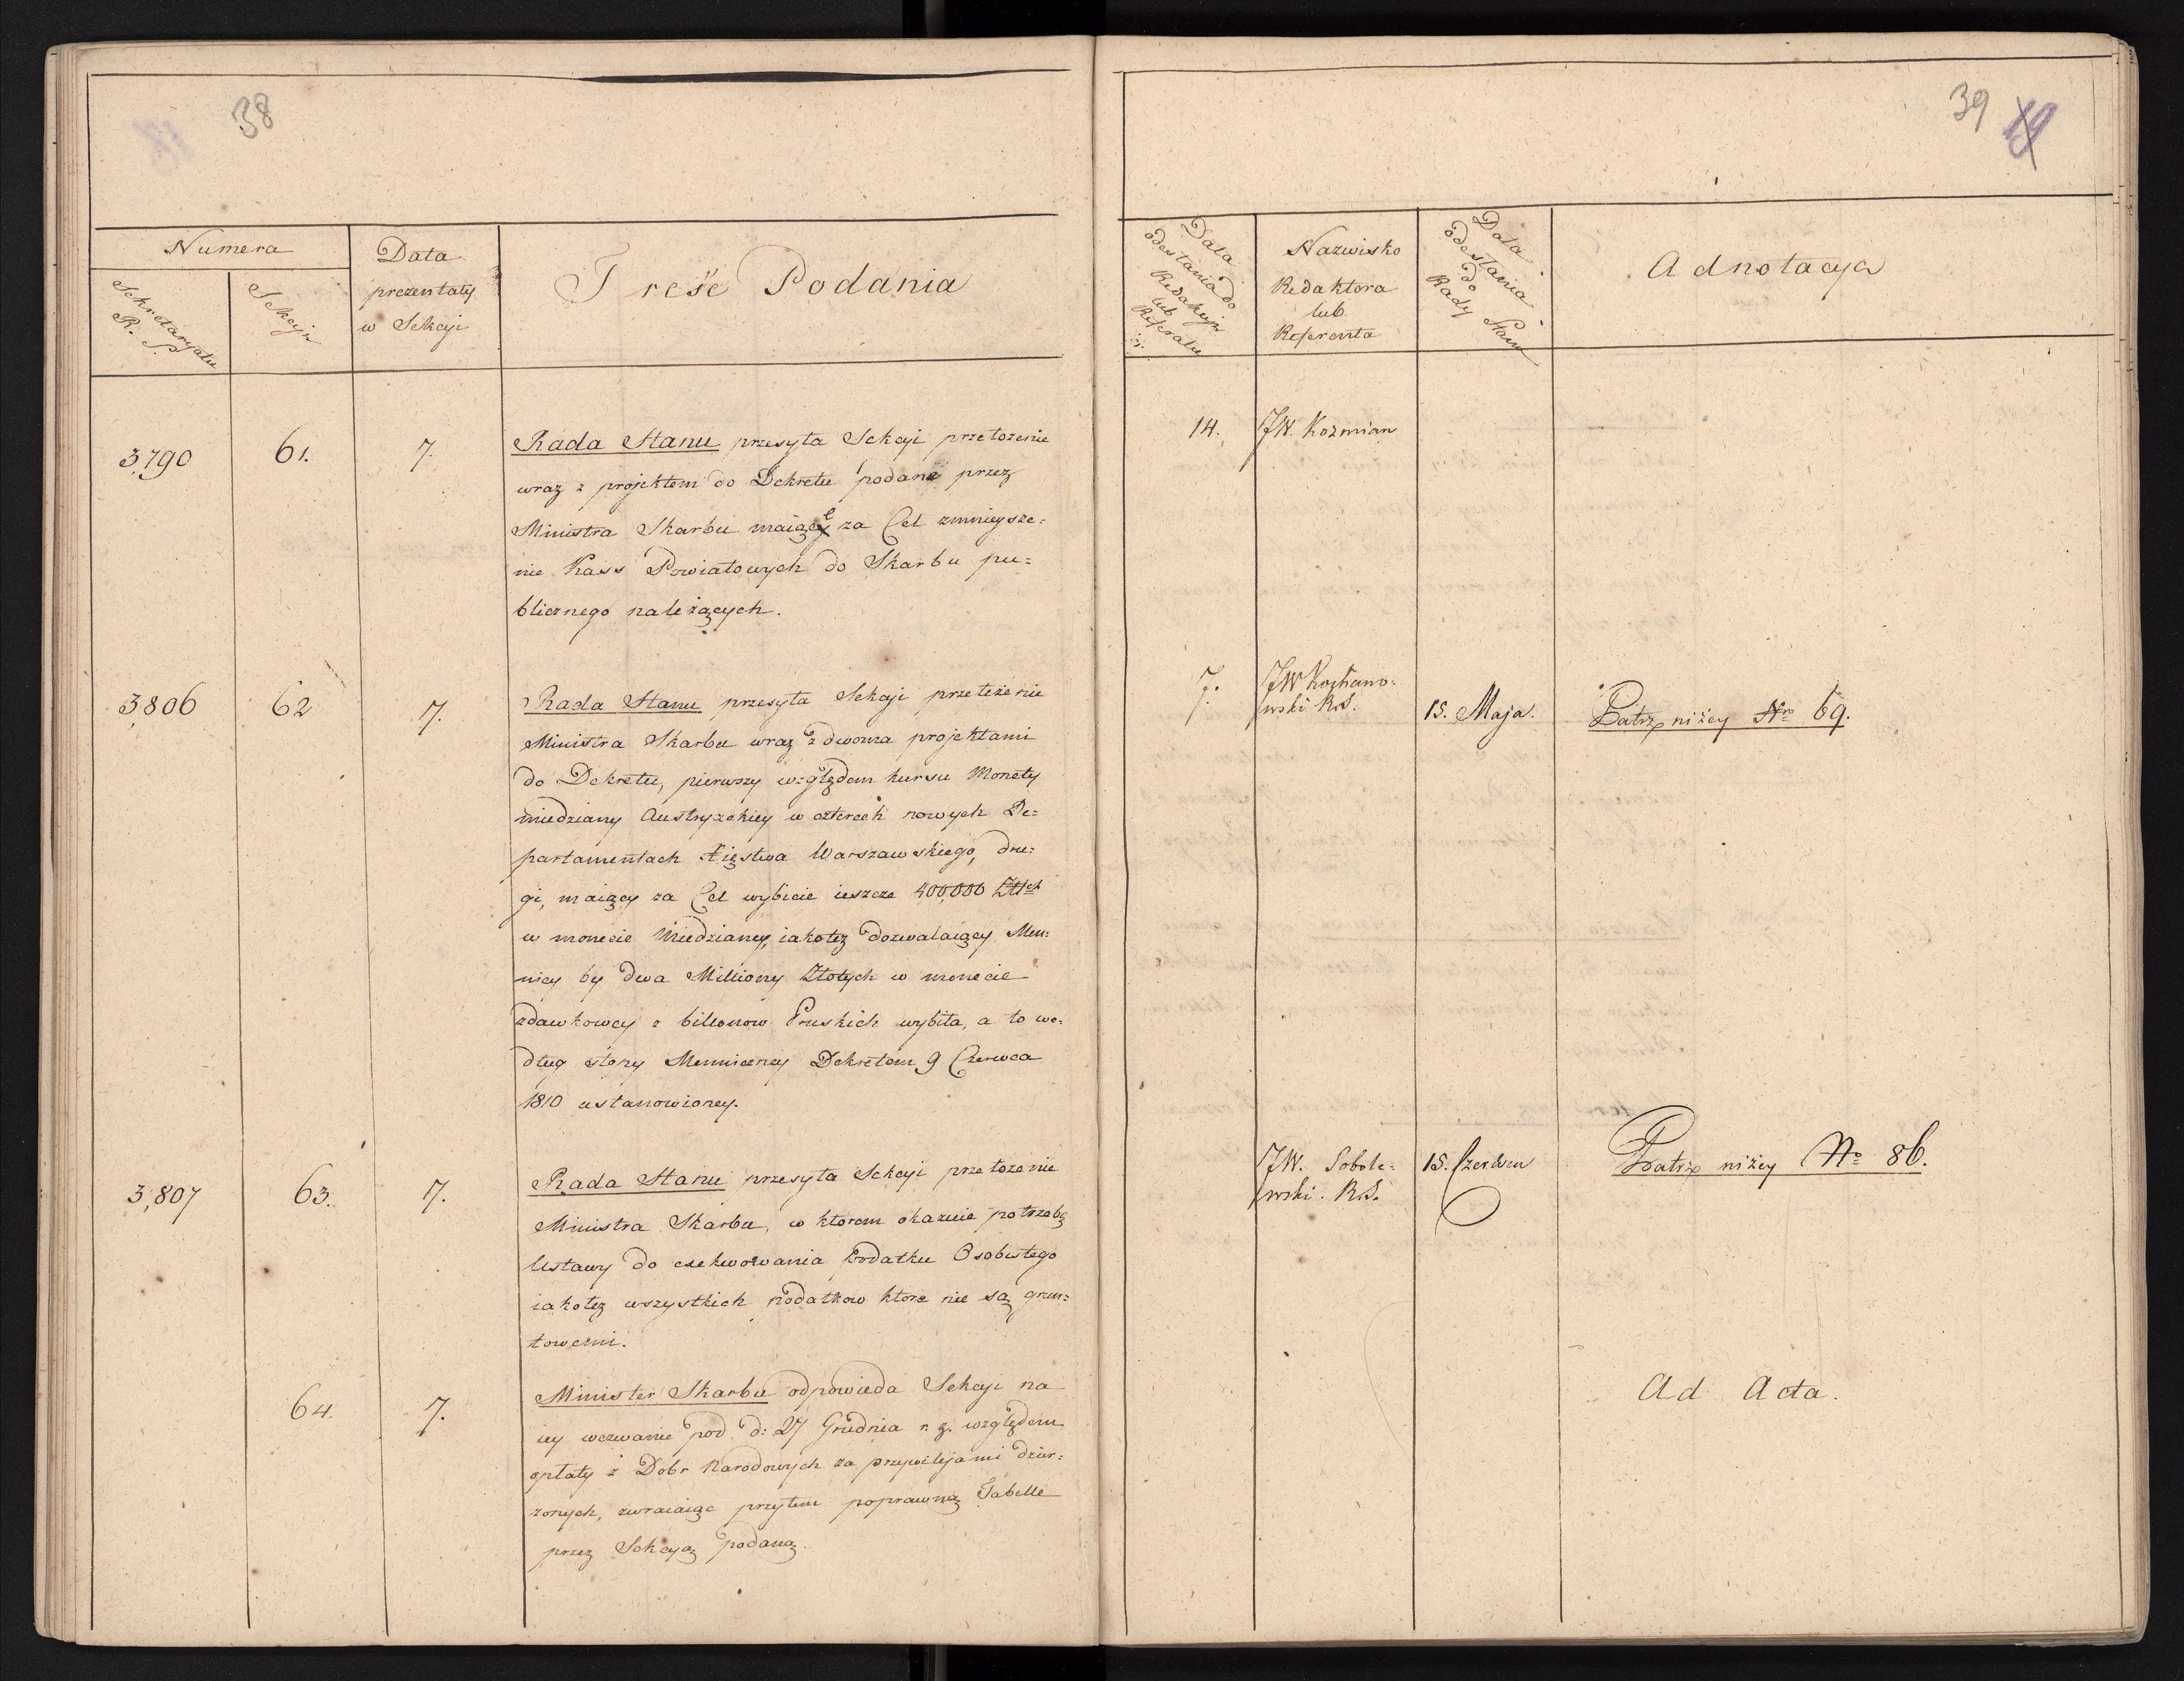 38
Numera
Sekretaryatu R. S.
Sekcyi
Data
prezentaty
w Sekcyi
Treść Podania
3,790
61.
7.
Rada Stanu przesyła Sekcyi przełożenie
wraz z projektem do Dekretu podane przez
Ministra Skarbu maiące za Cel zmnieysze=
nie Kass Powiatowych do Skarbu pu=
blicznego należących.
3,806
62
7.
Rada Stanu przesyła Sekcyi przełożenie
Ministra Skarbu wraz z dwoma projektami
do Dekretu, pierwszy względem kursu Monety
miedzianey Austryackiey w czterech nowych De=
partamentach Xięstwa Warszawskiego, dru=
gi, maiący za Cel wybicie ieszcze 400,000 Złłch
w monecie Miedzianey, iakoteż dozwalaiący Men=
nicy by dwa Milliony Złotych w monecie
zdawkowey z billonow Pruskich wybiła, a to we=
dług stopy Menniczney Dekretem 9 Czerwca
1810 ustanowioney.
3,807
63.
7.
Rada Stanu przesyła Sekcyi przełożenie
Ministra Skarbu, w ktorem okazuie potrzebę
Ustawy do exekwowania Podatku Osobistego
iakoteż wszystkich podatkow ktore nie są grun=
towemi.
64.
7.
Minister Skarbu odpowieda Sekcyi na
iey wezwanie pod d: 27 Grudnia r. z. względem
opłaty z Dobr Narodowych za przywilejami dzier=
żonych, zwracaiąc przytem poprawną Tabelle
przez Sekcyą podaną.
39 19
Data odesłania do Redakcyi lub Referatu
Nazwisko
Redaktora
lub
Referenta
Data odesłania do Rady Stanu
Adnotacya
14.
JW. Kozmian
7.
JW Kochano=
wski R.S.
15. Maja.
Patrz niżey Nro 69.
JW. Sobole=
wski. R.S.
15. Czerwca
Patrz niżey No 86.
Ad Acta.